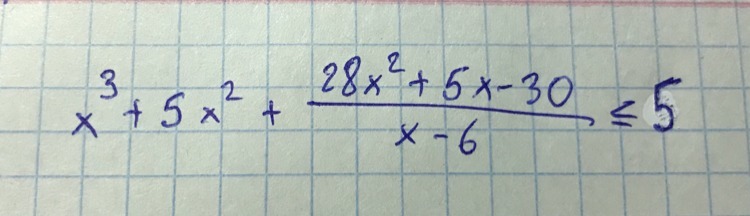 x³ + 5x² + (28x² + 5x - 30)/(x - 6) ≤ 5